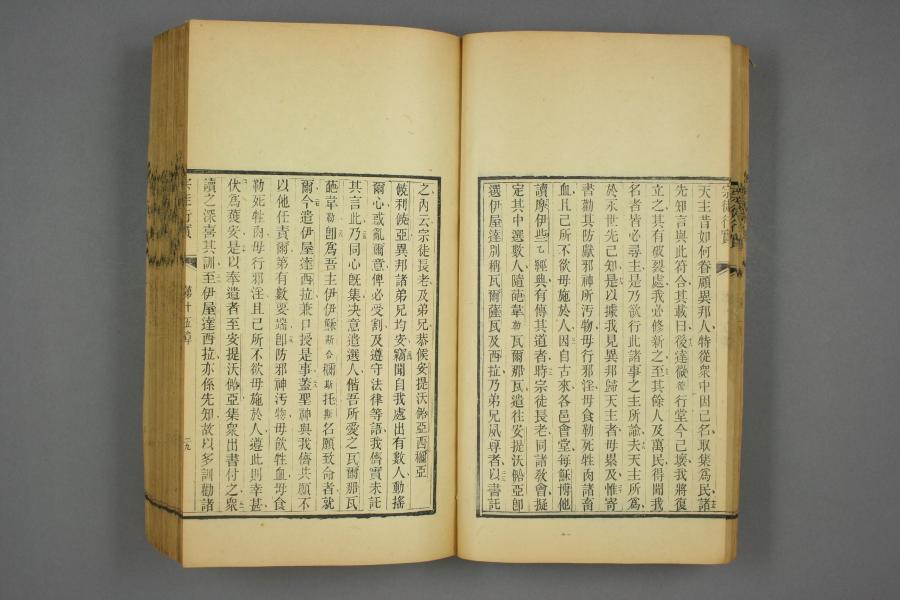 宗徒行實
天主昔如何眷顧異邦人特從衆中因己名取集為民諸
先知言與此符合其載曰後達微行堂今已壞我將復
立之其有破裂處我必修新之至其餘人及萬民得聞我
名者皆必尋主是乃欲行此諸事之主所諭夫天主所為
於永世先己知是以據我見異邦歸天主者毋累及惟寄
書勸其防獻邪神所汚物毋行邪淫毋食勒死牲肉諸畜
血且己所不欲毋施於人因自古來各邑會堂每穌博他
讀摩伊些乙經典有傳其道者時宗徒長老同諸敎會擬
定其中選數人隨葩韋勒瓦爾那瓦遣往安提沃佾亞卽
選伊屋達別稱瓦爾薩瓦及西拉乃弟兄夙尊者以書託
之內云宗徒長老及弟兄恭候安提沃佾亞西穪亞
餃利餃亞異邦諸弟兄均安竊聞自我處出有數人動搖
爾心或亂爾意俾必受割及遵守法律等語我儕實未託
其言此乃同心旣集決意遣選人偕吾所愛之瓦爾那瓦
葩韋勒卽爲吾主伊伊穌斯合穪斯托斯名願致命者就
爾今遣伊屋達西拉兼口授是事蓋聖神與我儕共願不
以他任責爾第有數要端卽防邪神汚物毋飲牲血毋食
勒死牲肉毋行邪淫且己所不欲毋施於人遵此則幸甚
伏爲萬安是以奉遣者至安提沃佾亞集衆出書付之衆
讀之深喜其訓至伊屋達西拉亦係先知故以多訓勸諸
宗徒行實
第十五章
二九